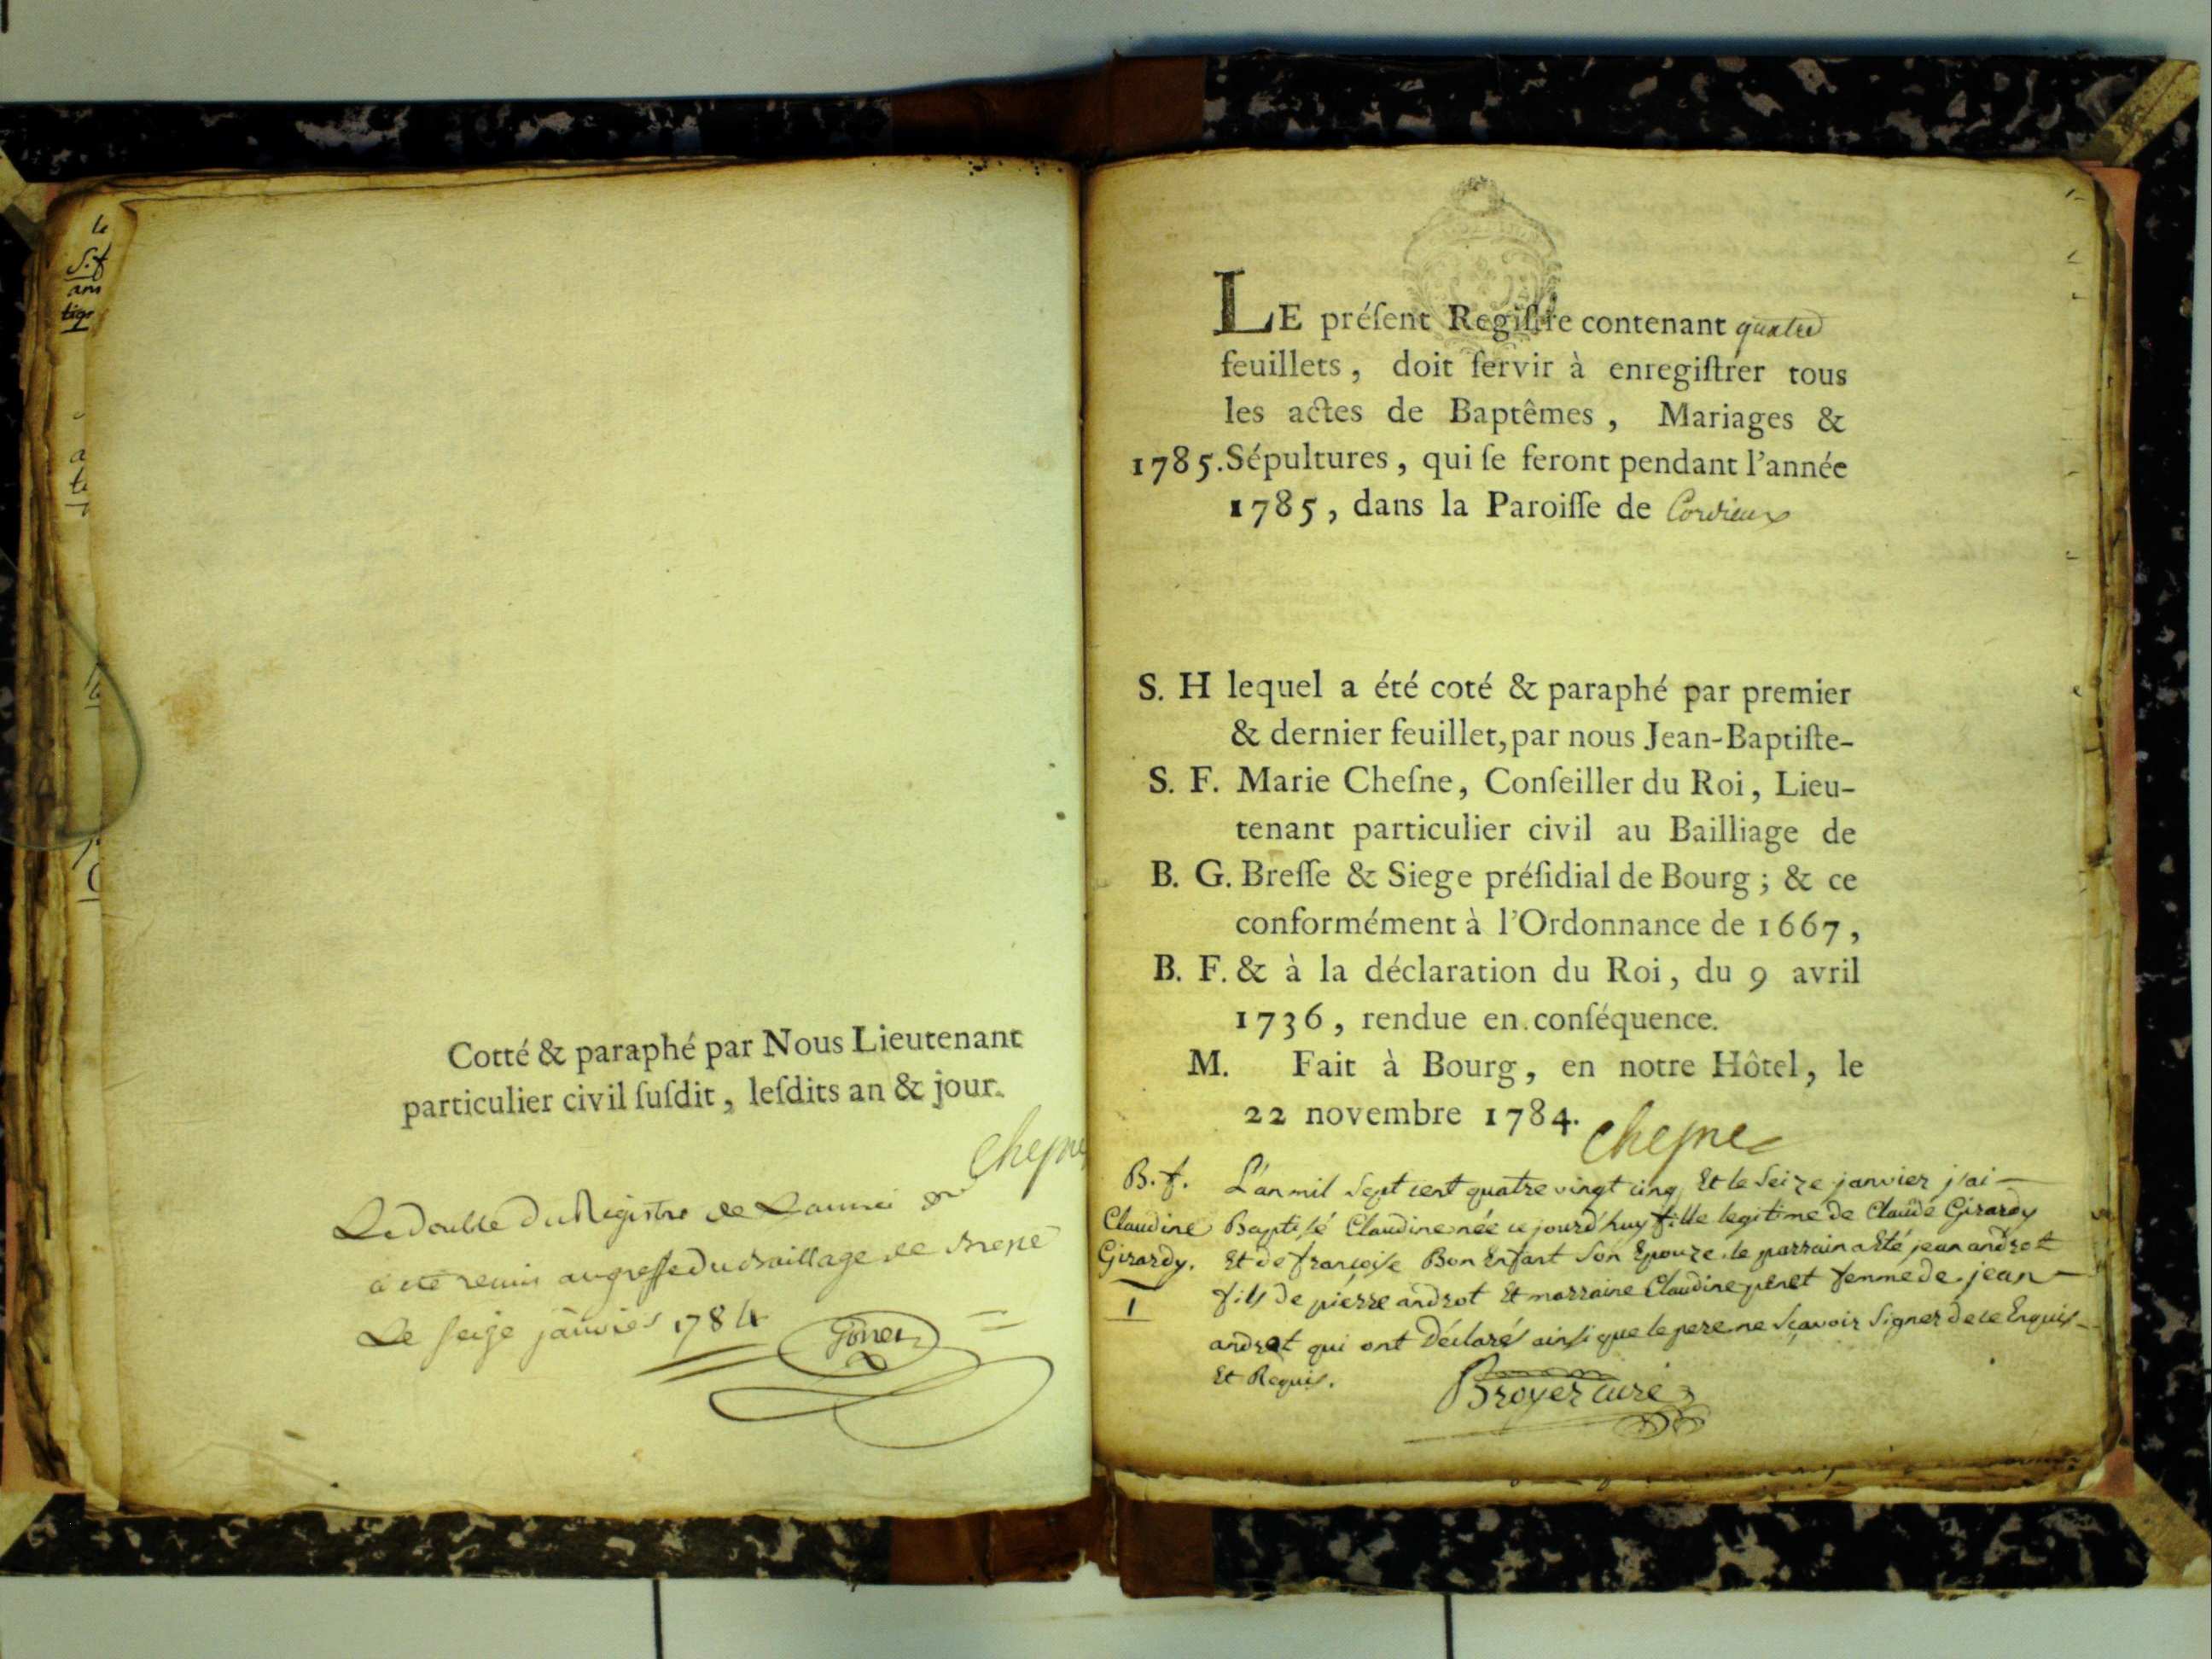 le
S.f
Cotté & paraphé par Nous Lieutenant
particulier civil ſuſdit, leſdits an & jour.
Cheſne
Le double du Registre de L'année
a été remis au greffe du Baillage de Bresse
Le seize janvier 1784
LE préſent Regiſtre contenant quatre
feuillets, doit ſervir à enregiſtrer tous
les actes de Baptêmes, Mariages &
1785. Sépultures, qui ſe feront pendant l'année
1785, dans la Paroiſſe de Cordieux
S. H lequel a été coté & paraphé par premier
& dernier feuillet, par nous Jean-Baptiſte-
S. F. Marie Cheſne, Conſeiller du Roi, Lieu-
tenant particulier civil au Bailliage de
B. G. Breſſe & Siege préſidial de Bourg; & ce
conformément à l'Ordonnance de 1667,
B. F. & à la déclaration du Roi, du 9 avril
1736, rendue en conſéquence.
M. Fait à Bourg, en notre Hôtel, le
22 novembre 1784.
Cheſne
B. f. L'an mil Sept cent quatre vingt cinq Et le Seize janvier j'ai
Claudine Baptisé Claudine née ce jourd'huy fille legitime de Claude Girardy
Girardy. Et de françoise Bon Enfant Son Epouze. le parrain a Eté jean androt
1 fils de pierre androt Et marraine Claudine penet femme de jean
androt qui ont Déclarés ainsi que le pere ne Sçavoir Signer de ce Enquis
Et Requis.
Broyer curé